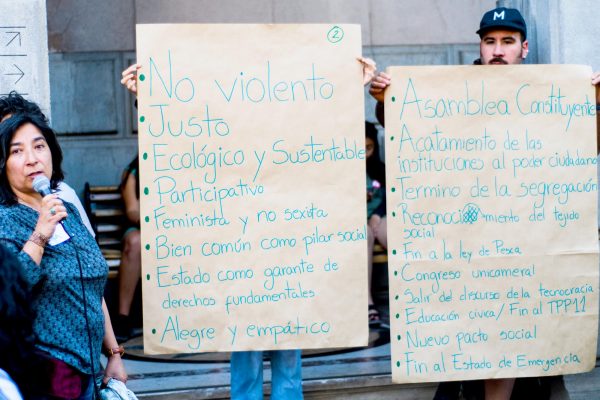 2
No violento
Justo
Ecológico y Sustentable
Participativo
Feminista y no sexita
Bien común como pilar social
Estado como garante de
derechos fundamentales
Alegre y empático
M
Asamblea Constituyente
Acatamiento de las
instituciones al poder ciudadano
Termino de la segregación
Reconocimiento del tejido
social
Fin a la ley de Pesca
Congreso unicameral
Salir del discurso de la tecnocracia
Educación cívica / Fin al TPP11
Nuevo pacto social
Fin al Estado de Emergencia